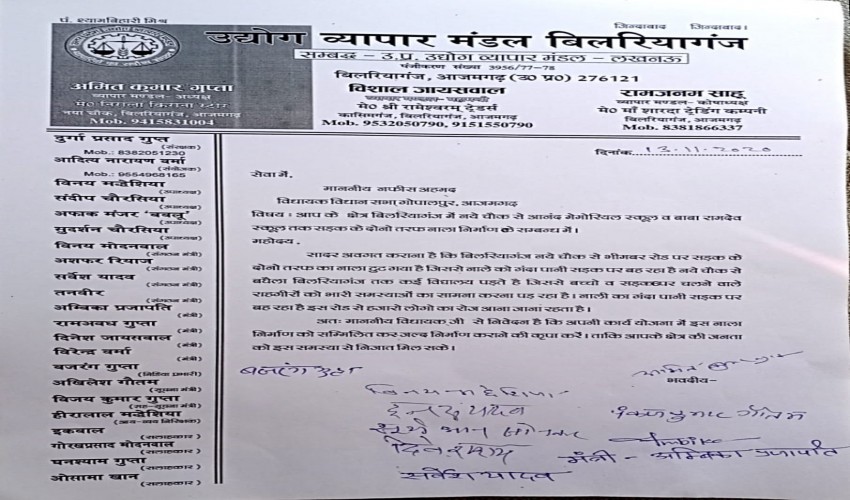 पं. श्यामबिहारी मिश्र
जिन्दाबाद जिन्दाबाद।
उद्योग व्यापार मंडल बिलरियागंज
सम्बद्ध - उ.प्र. उद्योग व्यापार मंडल - लखनऊ
पंजीकरण संख्या 3956/77-78
बिलरियागंज, आजमगढ़ (उ0 प्र0) 276121
अमित कुमार गुप्ता
व्यापार मण्डल- अध्यक्ष
मे0 निराला किराना स्टोर
नया चौक, बिलरियागंज, आजमगढ़
Mob. 9415831004
विशाल जायसवाल
मे0 श्री रामेश्वरम् ट्रेडर्स
कासिमगंज, बिलरियागंज, आजमगढ़
Mob. 9532050790, 9151550790
रामजनम साहू
व्यापार मण्डल- कोषाध्यक्ष
मे0 माँ शारदा ट्रेडिंग कम्पनी
बिलरियागंज, आजमगढ़
Mob. 8381866337
दुर्गा प्रसाद गुप्त
(संरक्षक)
Mob.: 8382051230
आदित्य नारायण वर्मा
(संयोजक)
Mob.: 9554968165
विनय मद्धेशिया
(उपाध्यक्ष)
संदीप चौरसिया
(उपाध्यक्ष)
अफाक मंजर 'बबलू'
(उपाध्यक्ष)
सुदर्शन चौरसिया
(उपाध्यक्ष)
विनय मोदनवाल
(संगठन मंत्री)
अशफर रियाज
(संगठन मंत्री)
सर्वेश यादव
(संगठन मंत्री)
तनवीर
(संगठन मंत्री)
अम्बिका प्रजापति
(मंत्री)
रामअवध गुप्ता
(मंत्री)
दिनेश जायसवाल
(मंत्री)
विरेन्द्र वर्मा
(मंत्री)
बजरंग गुप्ता
(मिडिया प्रभारी)
अखिलेश गौतम
(सूचना मंत्री)
विजय कुमार गुप्ता
(सह-सूचना मंत्री)
हीरालाल मद्धेशिया
(आय-व्यय निरिक्षक)
इकबाल
(सलाहकार)
गोरखप्रसाद मोदनवाल
(सलाहकार)
घनश्याम गुप्ता
(सलाहकार)
ओसामा खान
(सलाहकार)
दिनांक 13.11.2020
सेवा में,
माननीय नफीस अहमद
विधायक विधान सभा गोपालपुर, आजमगढ़
विषय : आप के क्षेत्र बिलरियागंज में नये चौक से आनंद मेमोरियल स्कूल व बाबा रामदेव
स्कूल तक सड़क के दोनो तरफ नाला निर्माण के सम्बन्ध में।
महोदय,
सादर अवगत कराना है कि बिलरियागंज नये चौक से भीमबर रोड पर सड़क के
दोनो तरफ का नाला टुट गया है जिससे नाले को गंदा पानी सड़क पर बह रहा है नये चौक से
बघैला बिलरियागंज तक कई विद्यालय पड़ते है जिससे बच्चो व सड़क पर चलने वाले
राहगीरों को भारी समस्याओं का सामना करना पड़ रहा है। नाली का गंदा पानी सड़क पर
बह रहा है इस रोड से हजारो लोगो का रोज आना जाना रहता है।
अतः माननीय विधायक जी से निवेदन है कि अपनी कार्य योजना में इस नाला
निर्माण को सम्मिलित कर जल्द निर्माण कराने की कृपा करें। ताकि आपके क्षेत्र की जनता
को इस समस्या से निजात मिल सके।
भवदीय-
मंत्री - अम्बिका प्रजापति
सर्वेश यादव